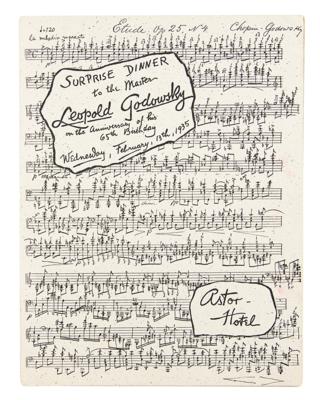 Etude Op 25 N° 4 Chopin-Godowsky
SURPRISE DINNER
to the Master
Leopold Godowsky
on the Anniversary of his
65th Birthday
Wednesday, February, 13th, 1935
Astor-
Hotel